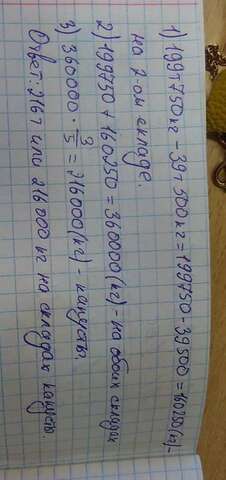 1) 199т 750кг - 39т 500кг = 199750 - 39500 = 160250 (кг) -
на 2-ом складе.
2) 199750 + 160250 = 360000 (кг) - на обоих складах
3) 360000 · 3/5 = 216000 (кг) - капусты.
Ответ: 216т или 216000 кг на складах капусты.